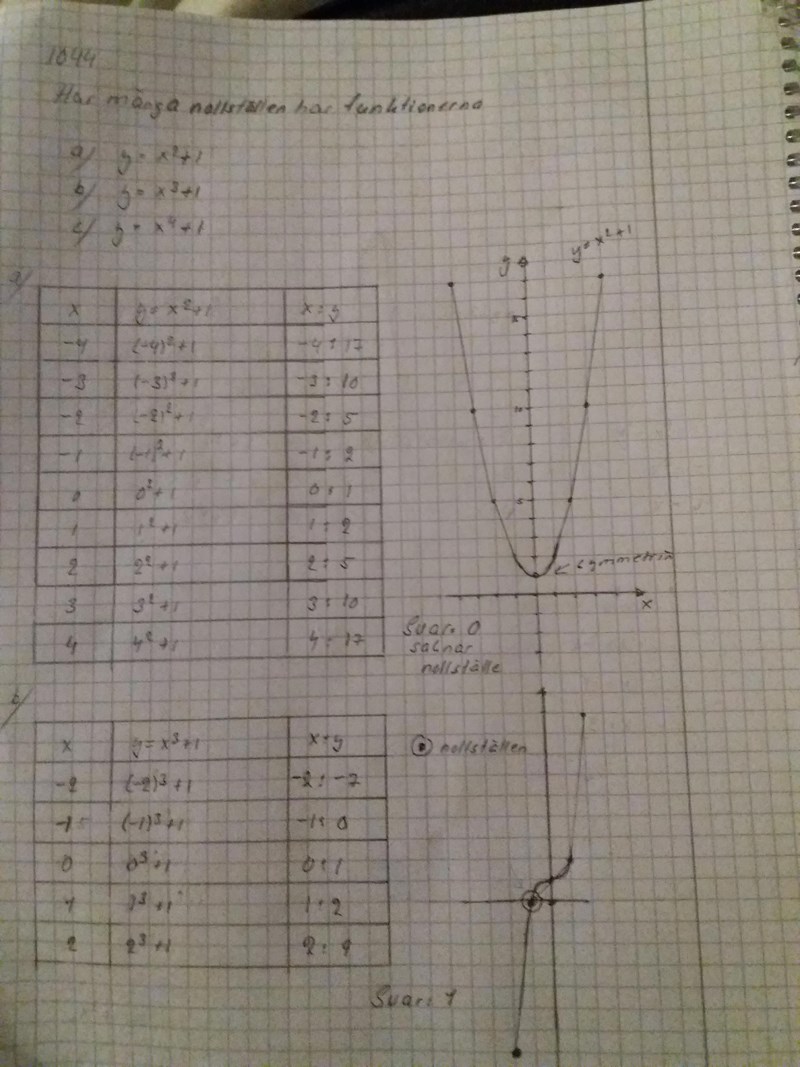 1044
Hur många nollställen har funktionerna
a) y = x²+1
b) y = x³+1
c) y = x⁴+1
a)
x y = x²+1 x : y
-4 (-4)²+1 -4 : 17
-3 (-3)²+1 -3 : 10
-2 (-2)²+1 -2 : 5
-1 (-1)²+1 -1 : 2
0 0²+1 0 : 1
1 1²+1 1 : 2
2 2²+1 2 : 5
3 3²+1 3 : 10
4 4²+1 4 : 17
y
y = x²+1
10
5
symmetri
x
Svar: 0
saknar
nollställe
b)
x y = x³+1 x : y
-2 (-2)³+1 -2 : -7
-1 (-1)³+1 -1 : 0
0 0³+1 0 : 1
1 1³+1 1 : 2
2 2³+1 2 : 9
nollställen
Svar: 1